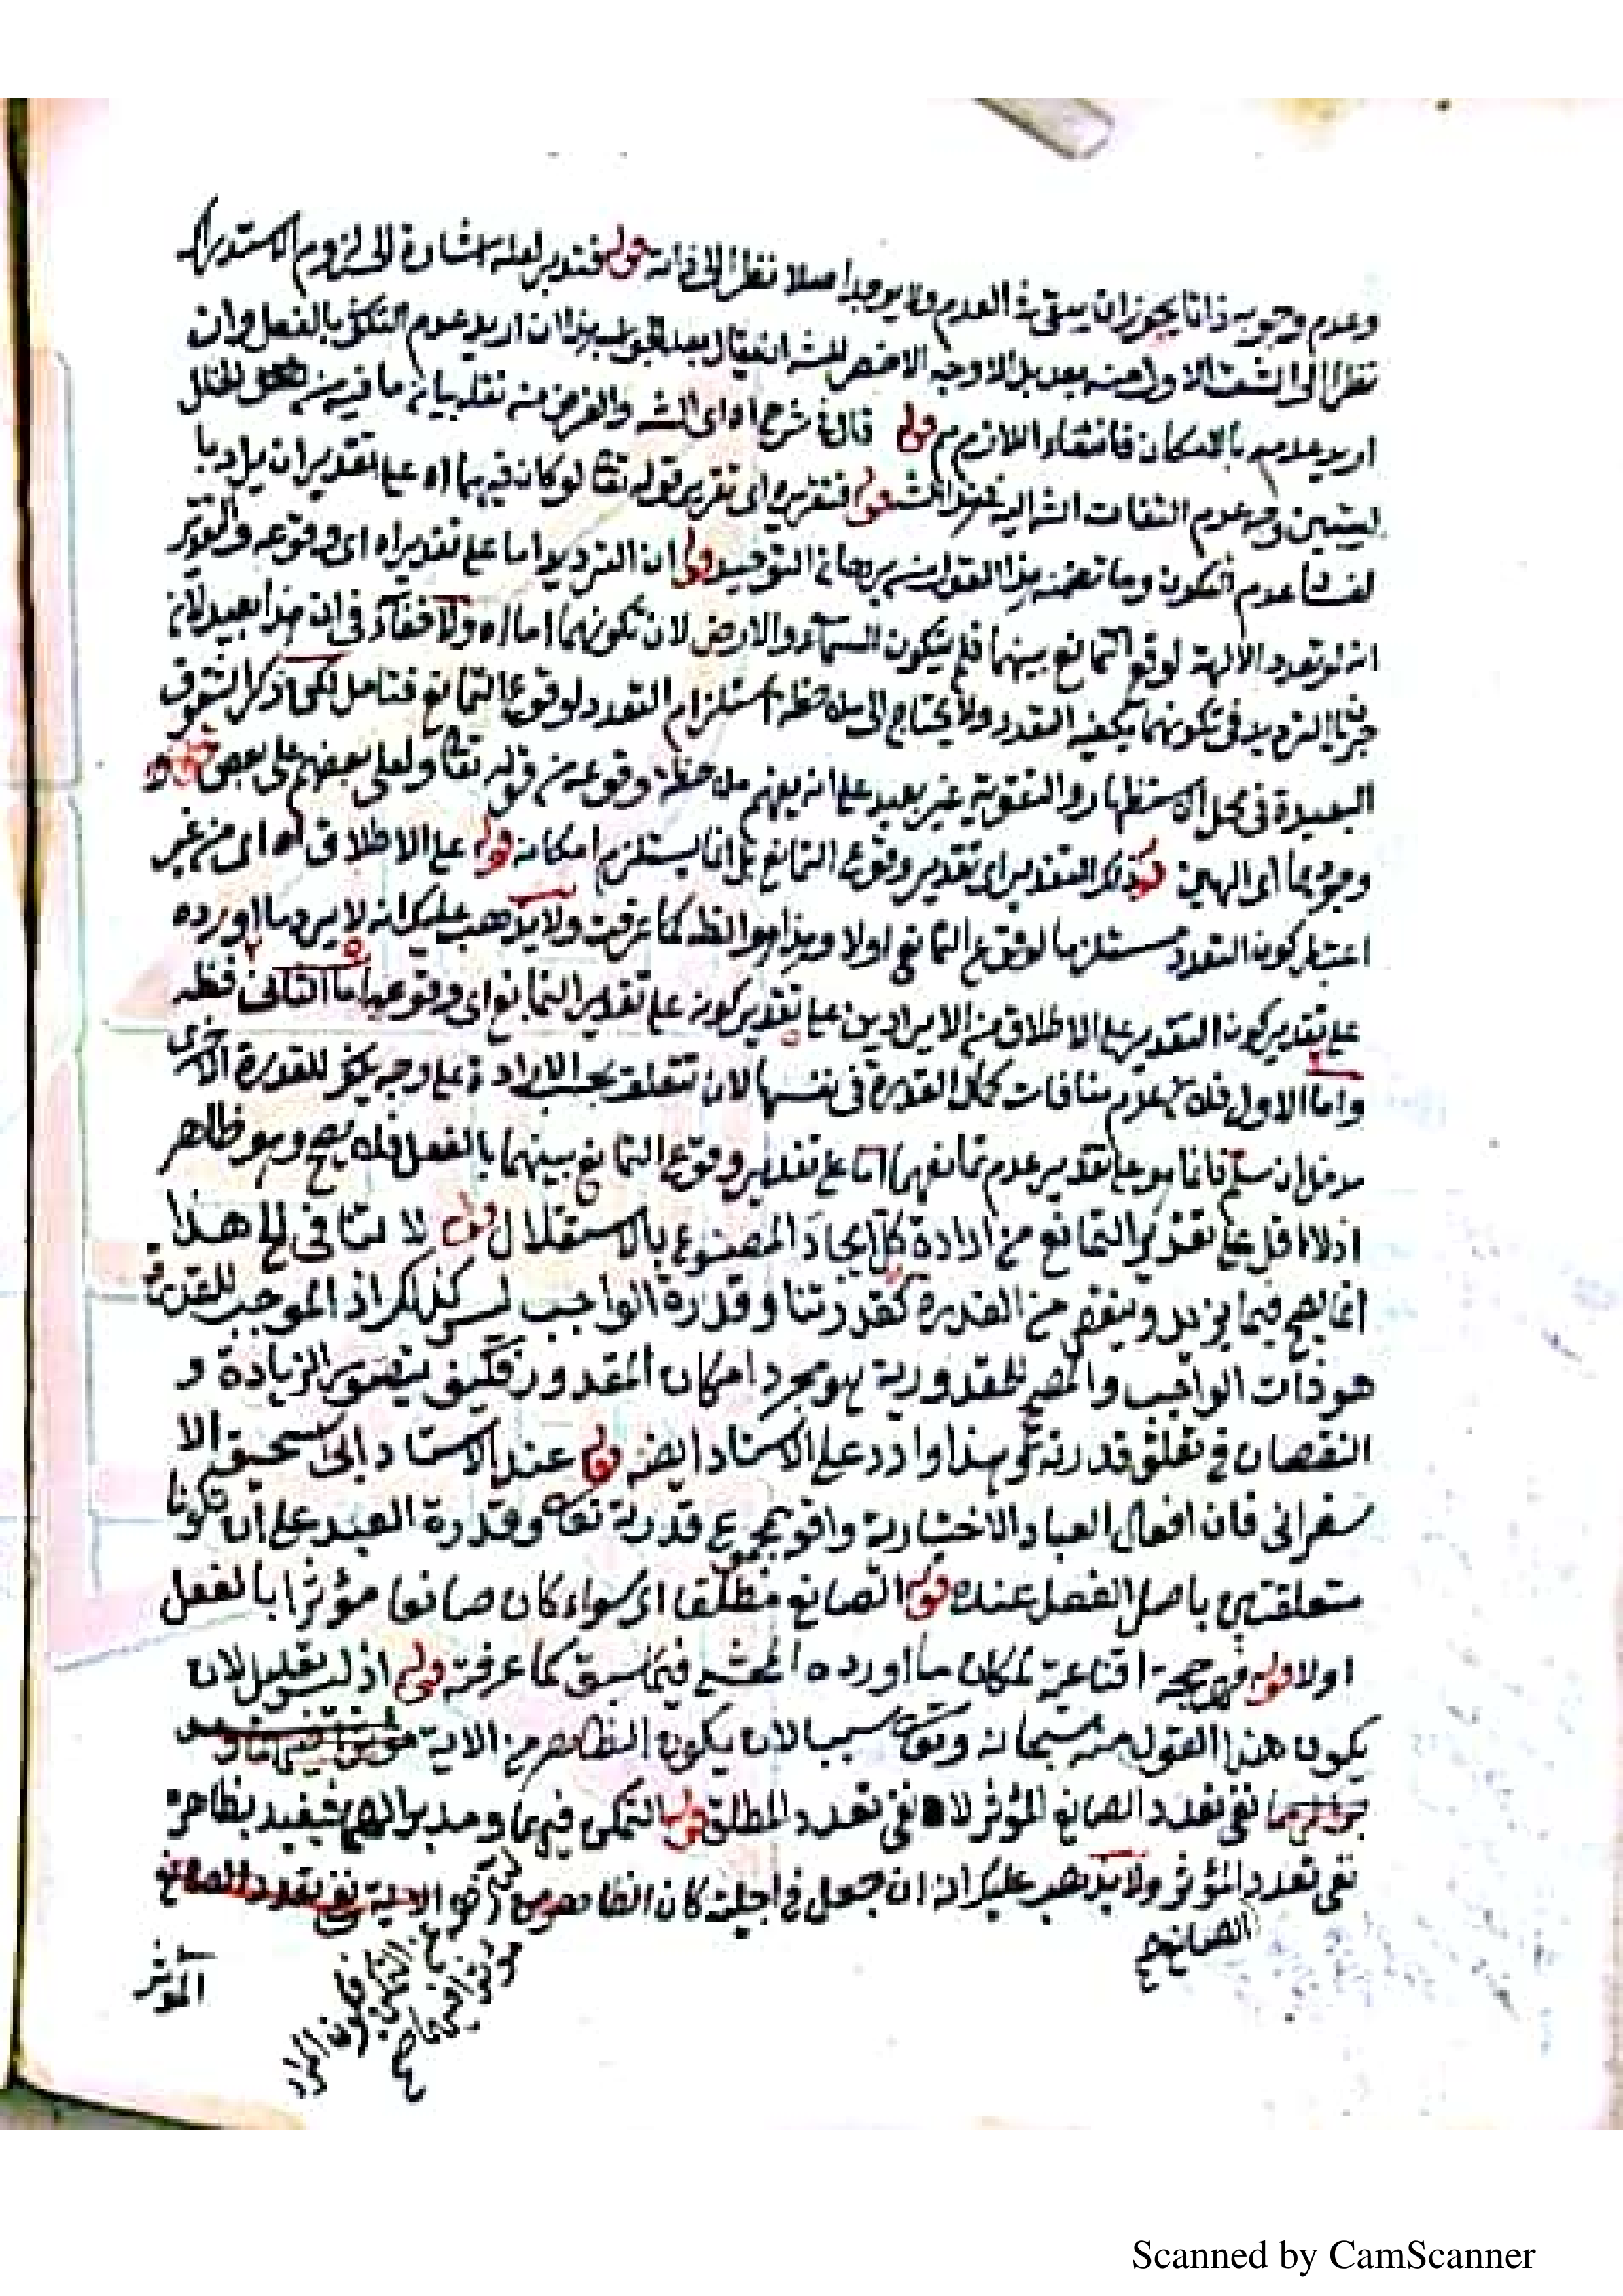 وعدم وجوبه ذاتا يجوز ان يبقى في العدم ولا يوجد اصلا نظرا الى ذاته قوله فتدبر لعله اشارة الى لزوم الاستدراك
نظرا الى الشق الاول منه بعد بل الاوجه الاخصر للشه ان يقال بعد قوله بهذا ان اريد عدم التكون بالفعل وان
اريد عدمه بالامكان فانتفاء اللازم مم قوله قال في شرح اه اى الشه والغرض منه نقله بيان ما فيه من الخلل
ليتبين وجه عدم التفات الشه اليه في هذا قوله فتقريره اى تقرير قوله تعا لو كان فيهما اه على تقدير ان يراد با
لفساد عدم التكون وما تضمنه هذا القول من برهان التوحيد قوله ان الترديد اما على تقديراه اى وقوعه والتقدير
انه لو تعدد الالهة لوقع التمانع بينهما فلم يتكون السماء والارض لان تكونهما اما اه ولا خفاء في ان هذا بعيد لان
جريان الترديد في تكونهما يكفيه التعدد ولا يحتاج الى ملاحظة استلزام التعدد لوقوع التمانع فتامل لكن ذكر الشقوق
البعيدة في محل الاستظهار والتقوية غير بعيد على انه يفهم ملاحظة وقوعه من قوله تعا ولعلى بعضهم على بعض قوله و
وجودهما اى الهين قوله ذلك التقدير اى تقدير وقوع التمانع بل انما يستلزم امكانه قوله على الاطلاق اه اى من غير
اعتبار كون التعدد مستلزما لوقوع التمانع اولا وهذا هو الظه كما عرفت ولا يذهب عليك انه لا يرد ما اورده
على تقدير كون التقدير على الاطلاق من الايرادين على تقدير كونه على تقدير التمانع اى وقوعه اما الثانى فظه
واما الاول فلان عدم منافات كمال القدرة في نفسها لان تتعلق بحسب الارادة على وجه يكون للقدرة الاخرى
مدخل ان سلم فانما هو على تقدير عدم تمانعهما اما على تقدير وقوع التمانع بينهما بالفعل فلا يصح وهو ظاهر
اذ لا اقل على تقدير التمانع من ارادة كل ايجاد المصنوع بالاستقلال قوله لا تنافى الخ هذا
انما يصح فيما يزيد وينقص من القدرة كقدرتنا وقدرة الواجب ليس كذلك اذ الموجب للقدرة
هو ذات الواجب والمصحح للمقدورية هو مجرد امكان المقدور فكيف يتصور الزيادة و
النقصان في تعلق قدرته تع وهذا وارد على الاستاد ايضه قوله عند الاستاد ابى اسحق الا
سفرانى فان افعال العباد الاختيارية واقع بمجموع قدرته تعا وقدرة العبد على ان تكونا
متعلقتين باصل الفعل عنده قوله الصانع مطلقا اى سواء كان صانعا مؤثرا بالفعل
اولا قوله فهو حجة اقناعية لمكان ما اورده المحشى فيما سبق كما عرفته قوله اذ ليس تعليل لان
يكون هذا القول منه سبحانه وتعا سببا لان يكون الظاهر من الاية
نفى تعدد الصانع المؤثر لا نفى تعدد المطلق قوله التمكن فيهما ومدبرالهما فيفيد بظاهره
نفى تعدد المؤثر ولا يذهب عليك انه ان جعل في اجلية كان الظاهر من الاية نفى تعدد الصانع
الصانع صح
فيكون المراد
مؤثرا فيهما صح
المؤثر
Scanned by CamScanner